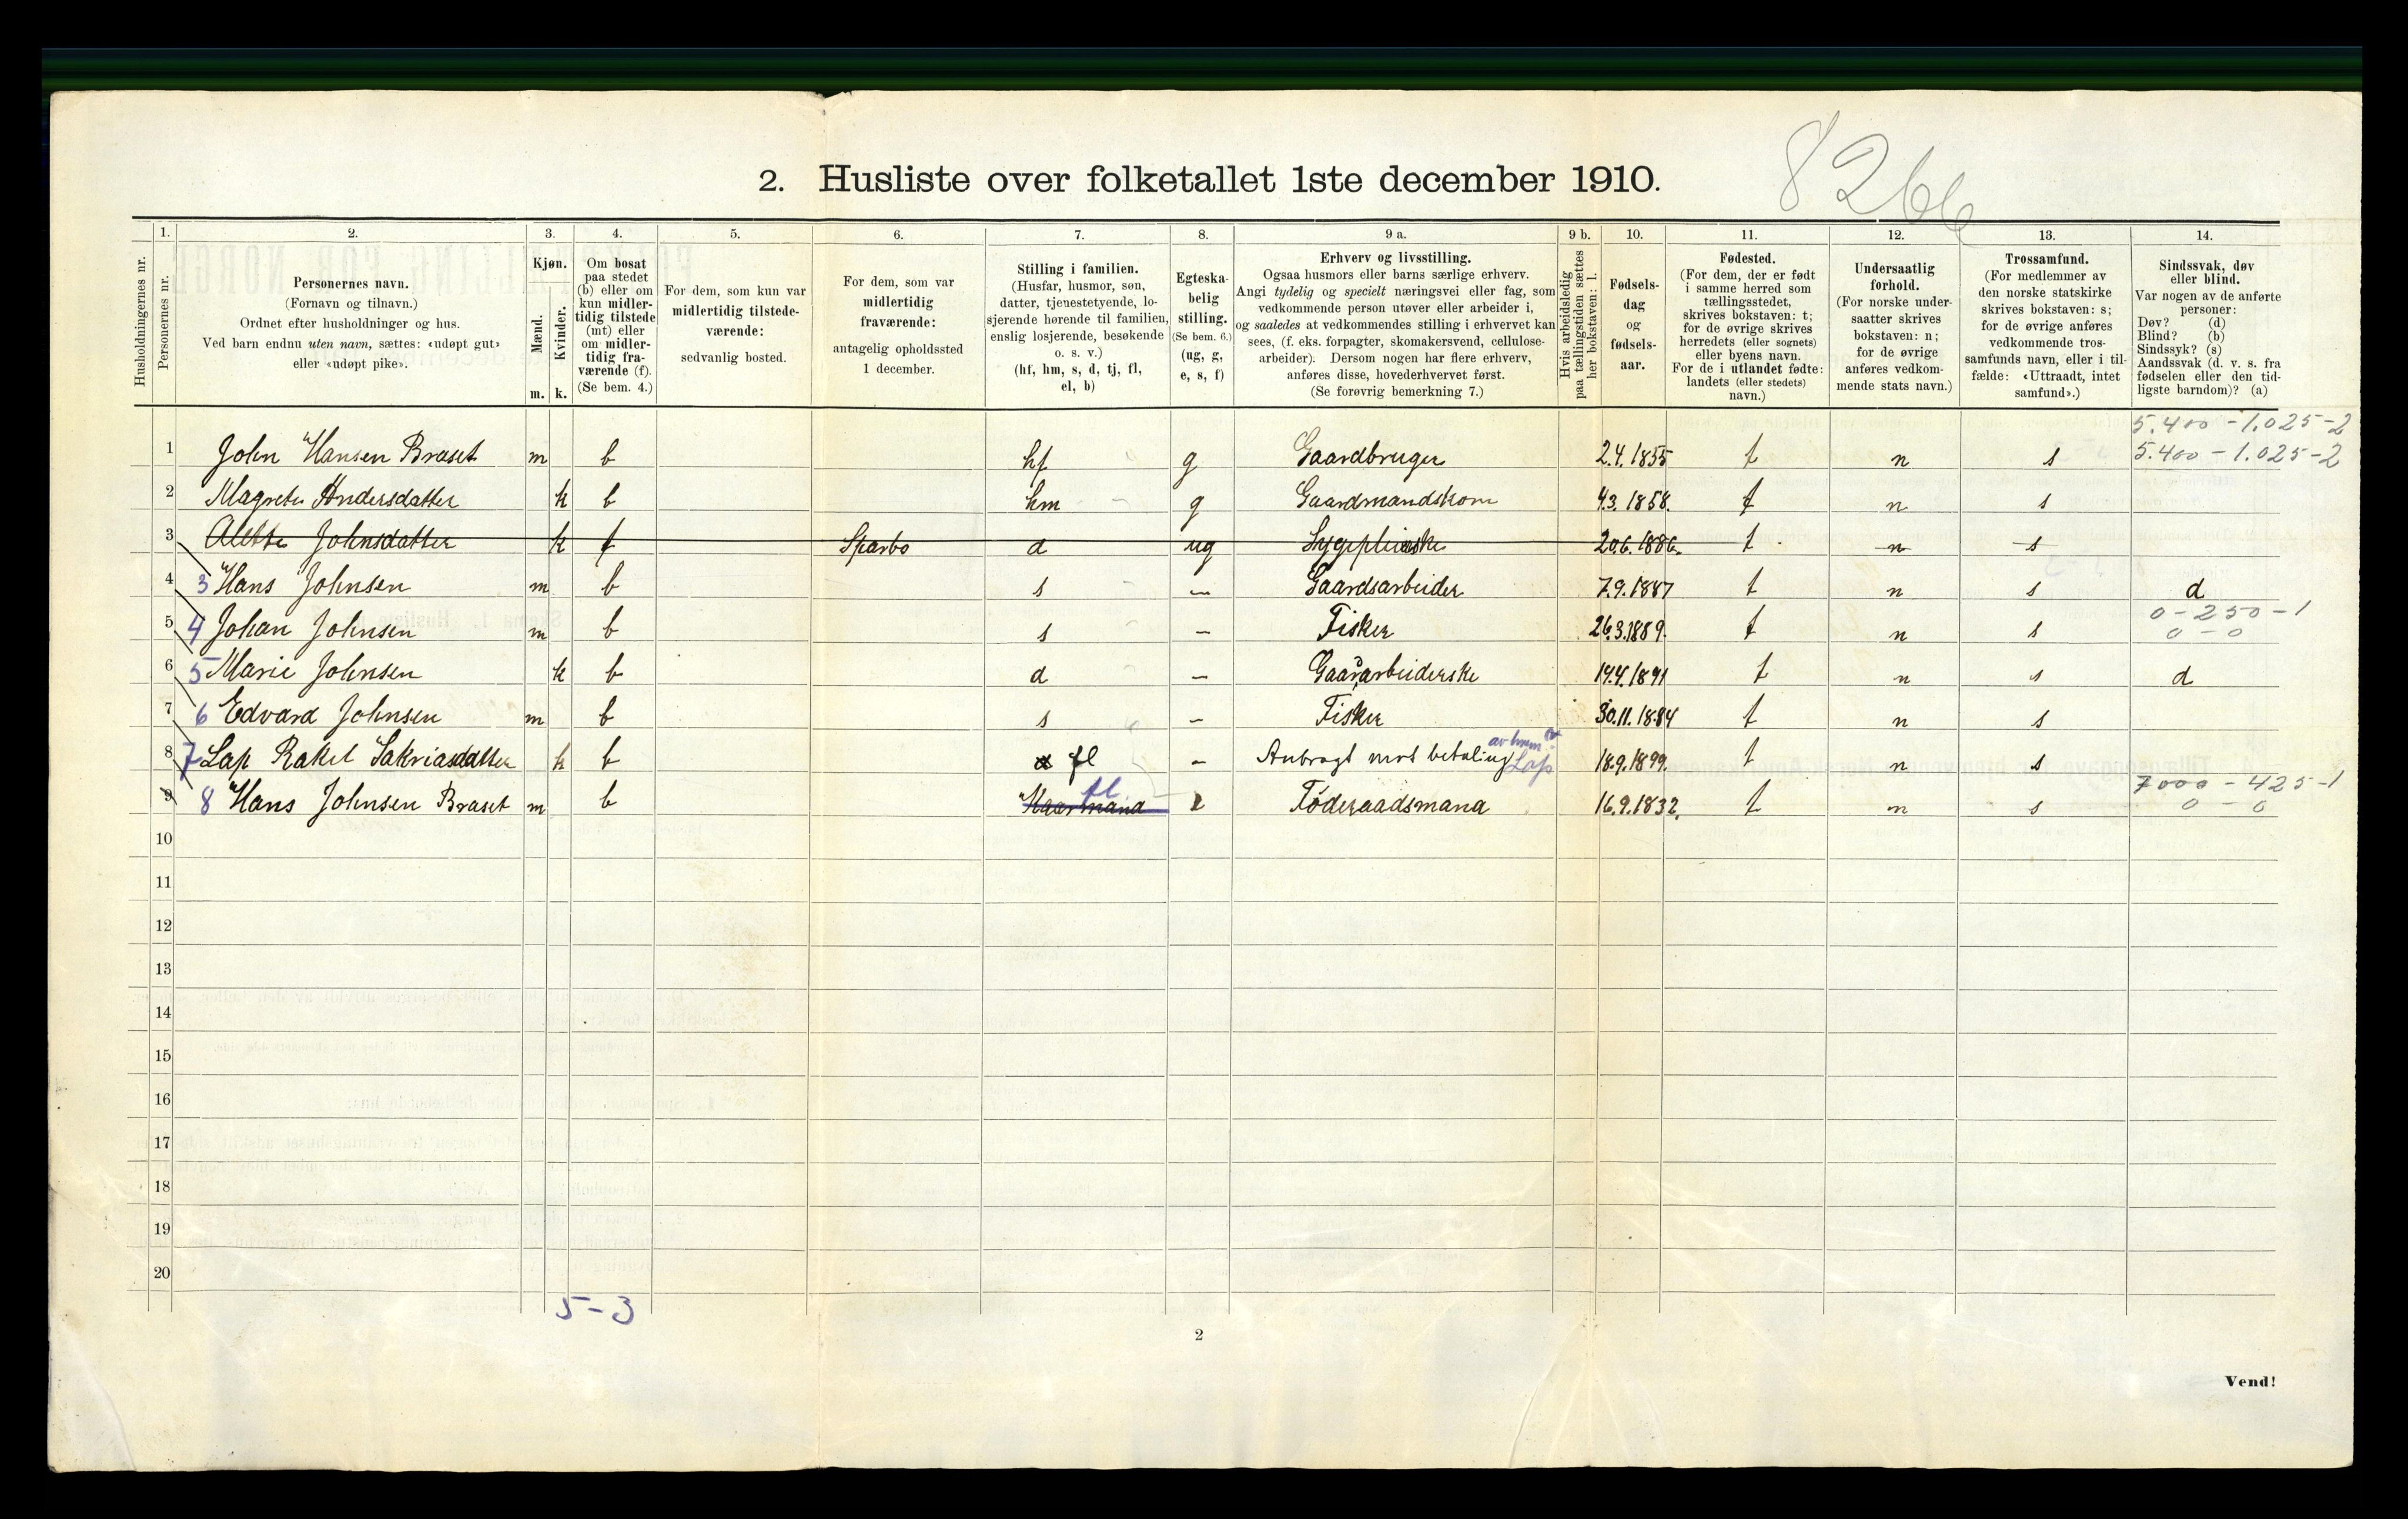 8266
2. Husliste over folketallet 1ste december 1910.
1. 2. 3. 4. 5. 6. 7. 8. 9 a. 9 b. 10. 11. 12. 13. 14.
Husholdningernes nr.
Personernes nr.
Personernes navn.
(Fornavn og tilnavn.)
Ordnet efter husholdninger og hus.
Ved barn endnu uten navn, sættes: «udøpt gut»
eller «udøpt pike».
Kjøn.
Mænd.
Kvinder.
m. k.
Om bosat
paa stedet
(b) eller om
kun midler-
tidig tilstede
(mt) eller
om midler-
tidig fra-
værende (f).
(Se bem. 4.)
For dem, som kun var
midlertidig tilstede-
værende:
sedvanlig bosted.
For dem, som var
midlertidig
fraværende:
antagelig opholdssted
1 december.
Stilling i familien.
(Husfar, husmor, søn,
datter, tjenestetyende, lo-
sjerende hørende til familien,
enslig losjerende, besøkende
o. s. v.)
(hf, hm, s, d, tj, fl,
el, b)
Egteska-
belig
stilling.
(Se bem. 6.)
(ug, g,
e, s, f)
Erhverv og livsstilling.
Ogsaa husmors eller barns særlige erhverv.
Angi tydelig og specielt næringsvei eller fag, som
vedkommende person utøver eller arbeider i,
og saaledes at vedkommendes stilling i erhvervet kan
sees, (f. eks. forpagter, skomakersvend, cellulose-
arbeider). Dersom nogen har flere erhverv,
anføres disse, hovederhvervet først.
(Se forøvrig bemerkning 7.)
Hvis arbeidsledig
paa tællingstiden sættes
her bokstaven: l.
Fødsels-
dag
og
fødsels-
aar.
Fødested.
(For dem, der er født
i samme herred som
tællingsstedet,
skrives bokstaven: t;
for de øvrige skrives
herredets (eller sognets)
eller byens navn.
For de i utlandet fødte:
landets (eller stedets)
navn.)
Undersaatlig
forhold.
(For norske under-
saatter skrives
bokstaven: n;
for de øvrige
anføres vedkom-
mende stats navn.)
Trossamfund.
(For medlemmer av
den norske statskirke
skrives bokstaven: s;
for de øvrige anføres
vedkommende tros-
samfunds navn, eller i til-
fælde: «Uttraadt, intet
samfund».)
Sindssvak, døv
eller blind.
Var nogen av de anførte
personer:
Døv? (d)
Blind? (b)
Sindssyk? (s)
Aandssvak (d. v. s. fra
fødselen eller den tid-
ligste barndom)? (a)
5.400 - 1.025 - 2
1 John Hansen Braset m b hf g Gaardbruger 2.4.1855 t n s 5.400 - 1.025 - 2
2 Magrete Andersdatter k b hm g Gaardmandskone 4.3.1858. t n s
3 Alette Johnsdatter k f Sparbo d ug Sygepleierske 20.6.1886. t n s
4 3 Hans Johnsen m b s - Gaardsarbeider 7.9.1887 t n s d
0 - 250 - 1
5 4 Johan Johnsen m b s - Fisker 26.3.1889. t n s 0 - 0
6 5 Marie Johnsen k b d - Gaardarbeiderske 14.4.1891 t n s d
7 6 Edvard Johnsen m b s - Fisker 30.11.1884 t n s
8 7 Lap Rakel Sakriasdatter k b fl - Anbragt mot betaling Lap 18.9.1899. t n s
fl 7000 - 425 - 1
9 8 Hans Johnsen Braset m b Kaarmand Føderaadsmand 16.9.1832. t n s 0 - 0
10
11
12
13
14
15
16
17
18
19
20
5 - 3
2
Vend!